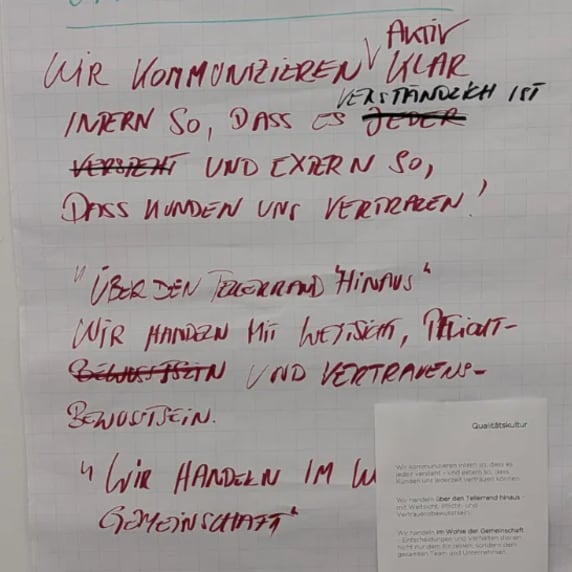 AKTIV
WIR KOMMUNIZIEREN KLAR
VERSTÄNDLICH IST
INTERN SO, DASS ES JEDER
VERSTEHT UND EXTERN SO,
DASS KUNDEN UNS VERTRAUEN!
"ÜBER DEN TELLERRAND HINAUS"
WIR HANDELN MIT WEITSICHT, PFLICHT-
BEWUSSTSEIN UND VERTRAUENS-
BEWUSTSEIN.
"WIR HANDELN IM W
GEMEINSCHAFT"
Qualitätskultur
Wir kommunizieren intern so, dass es
jeder versteht - und extern so, dass
Kunden uns jederzeit vertrauen können.
Wir handeln über den Tellerrand hinaus -
mit Weitsicht, Pflicht- und
Vertrauensbewusstsein.
Wir handeln im Wohle der Gemeinschaft
- Entscheidungen und Verhalten dienen
nicht nur dem Einzelnen, sondern dem
gesamten Team und Unternehmen.